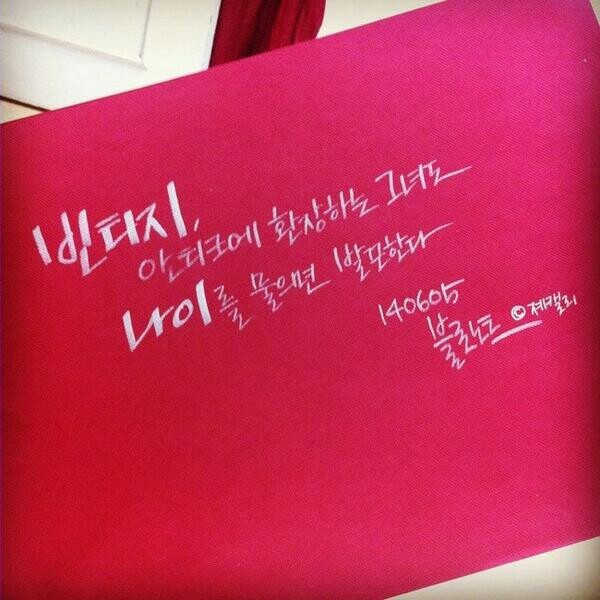 빈티지,
안티크에 환장하는 그녀도
나이를 물으면 발끈한다
140605
블로노트 ©제캘리